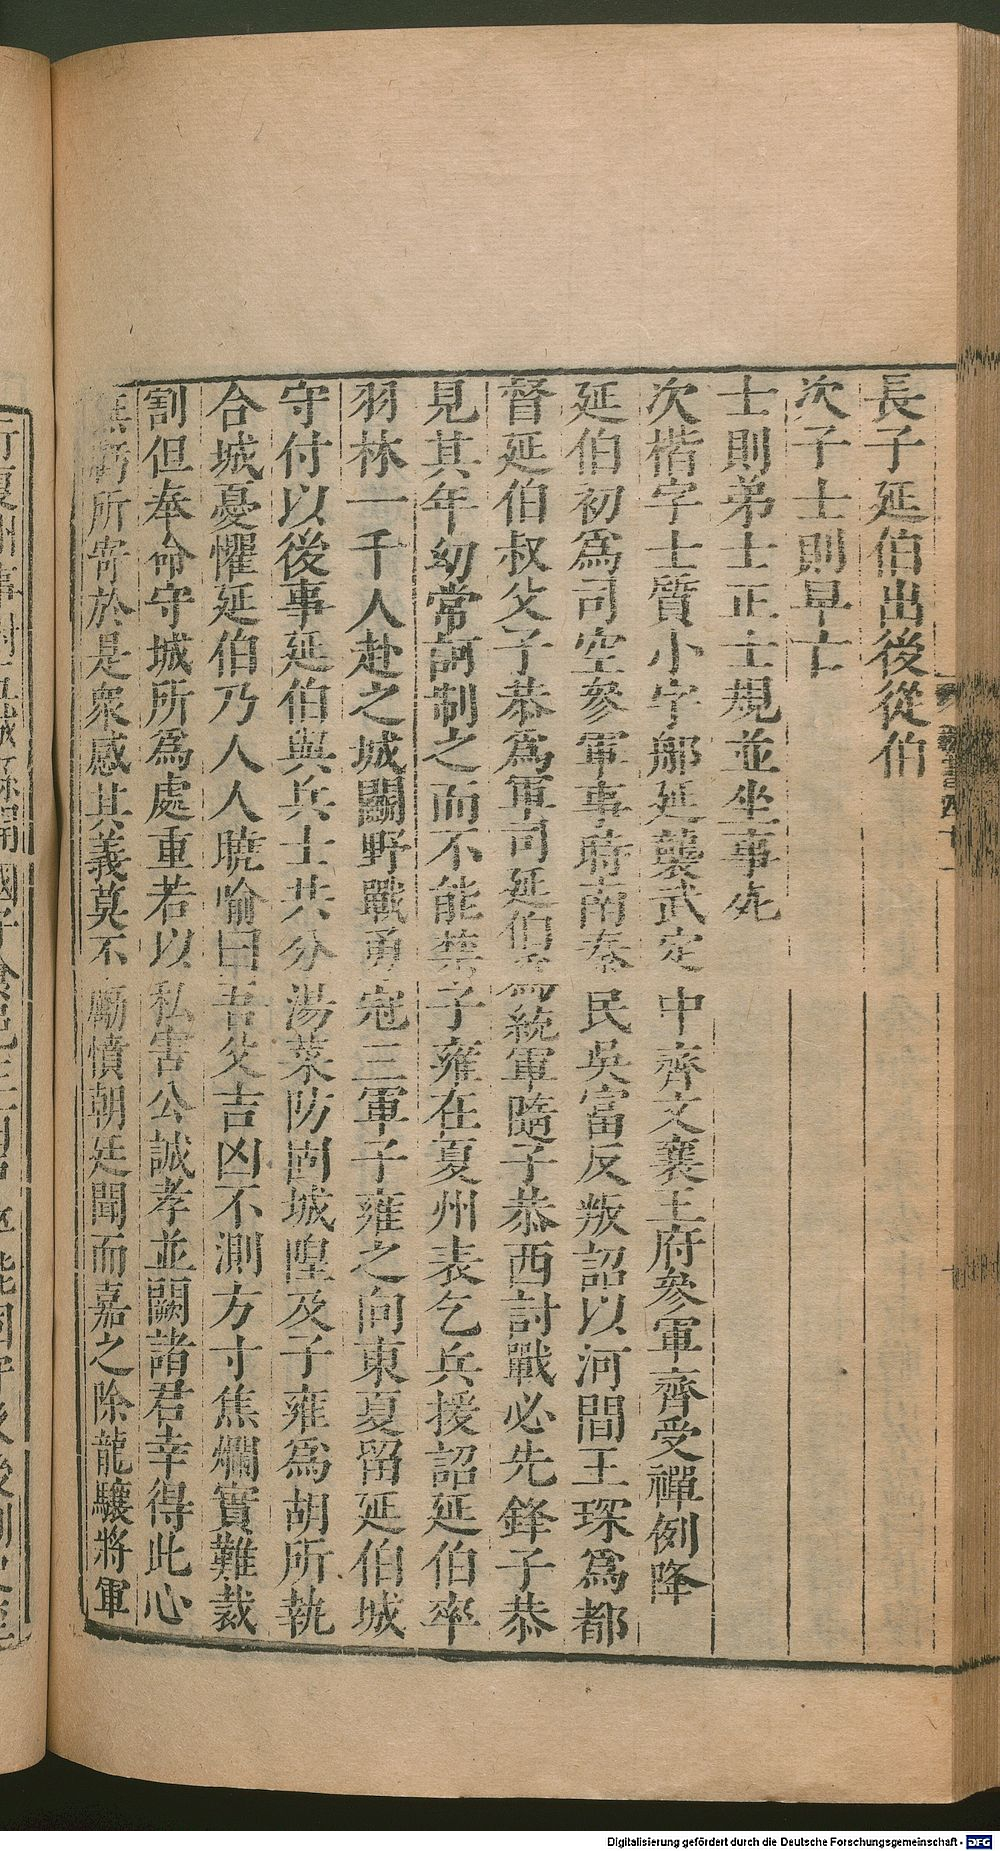 長子延伯出後從伯
次子士則早亡
士則弟士正士規並坐事死
次楷字士質小字那延襲武定中齊文襄王府參軍齊受禪例降
延伯初爲司空參軍事時南秦民吳富反叛詔以河間王琛爲都
督延伯叔父子恭爲軍司延伯爲統軍隨子恭西討戰必先鋒子恭
見其年幼常訶制之而不能禁子雍在夏州表乞兵援詔延伯率
羽林一千人赴之城鬬野戰勇冠三軍子雍之向東夏留延伯城
守付以後事延伯與兵士共分湯菜防固城隍及子雍爲胡所執
合城憂懼延伯乃人人曉喻曰吾父吉凶不測方寸焦爛實難裁
割但奉命守城所爲處重若以私害公誠孝並闕諸君幸得此心
無虧所寄於是衆感其義莫不勵憤朝廷聞而嘉之除龍驤將軍
行夏州事封五城縣開國子食邑三百
Digitalisierung gefördert durch die Deutsche Forschungsgemeinschaft - DFG